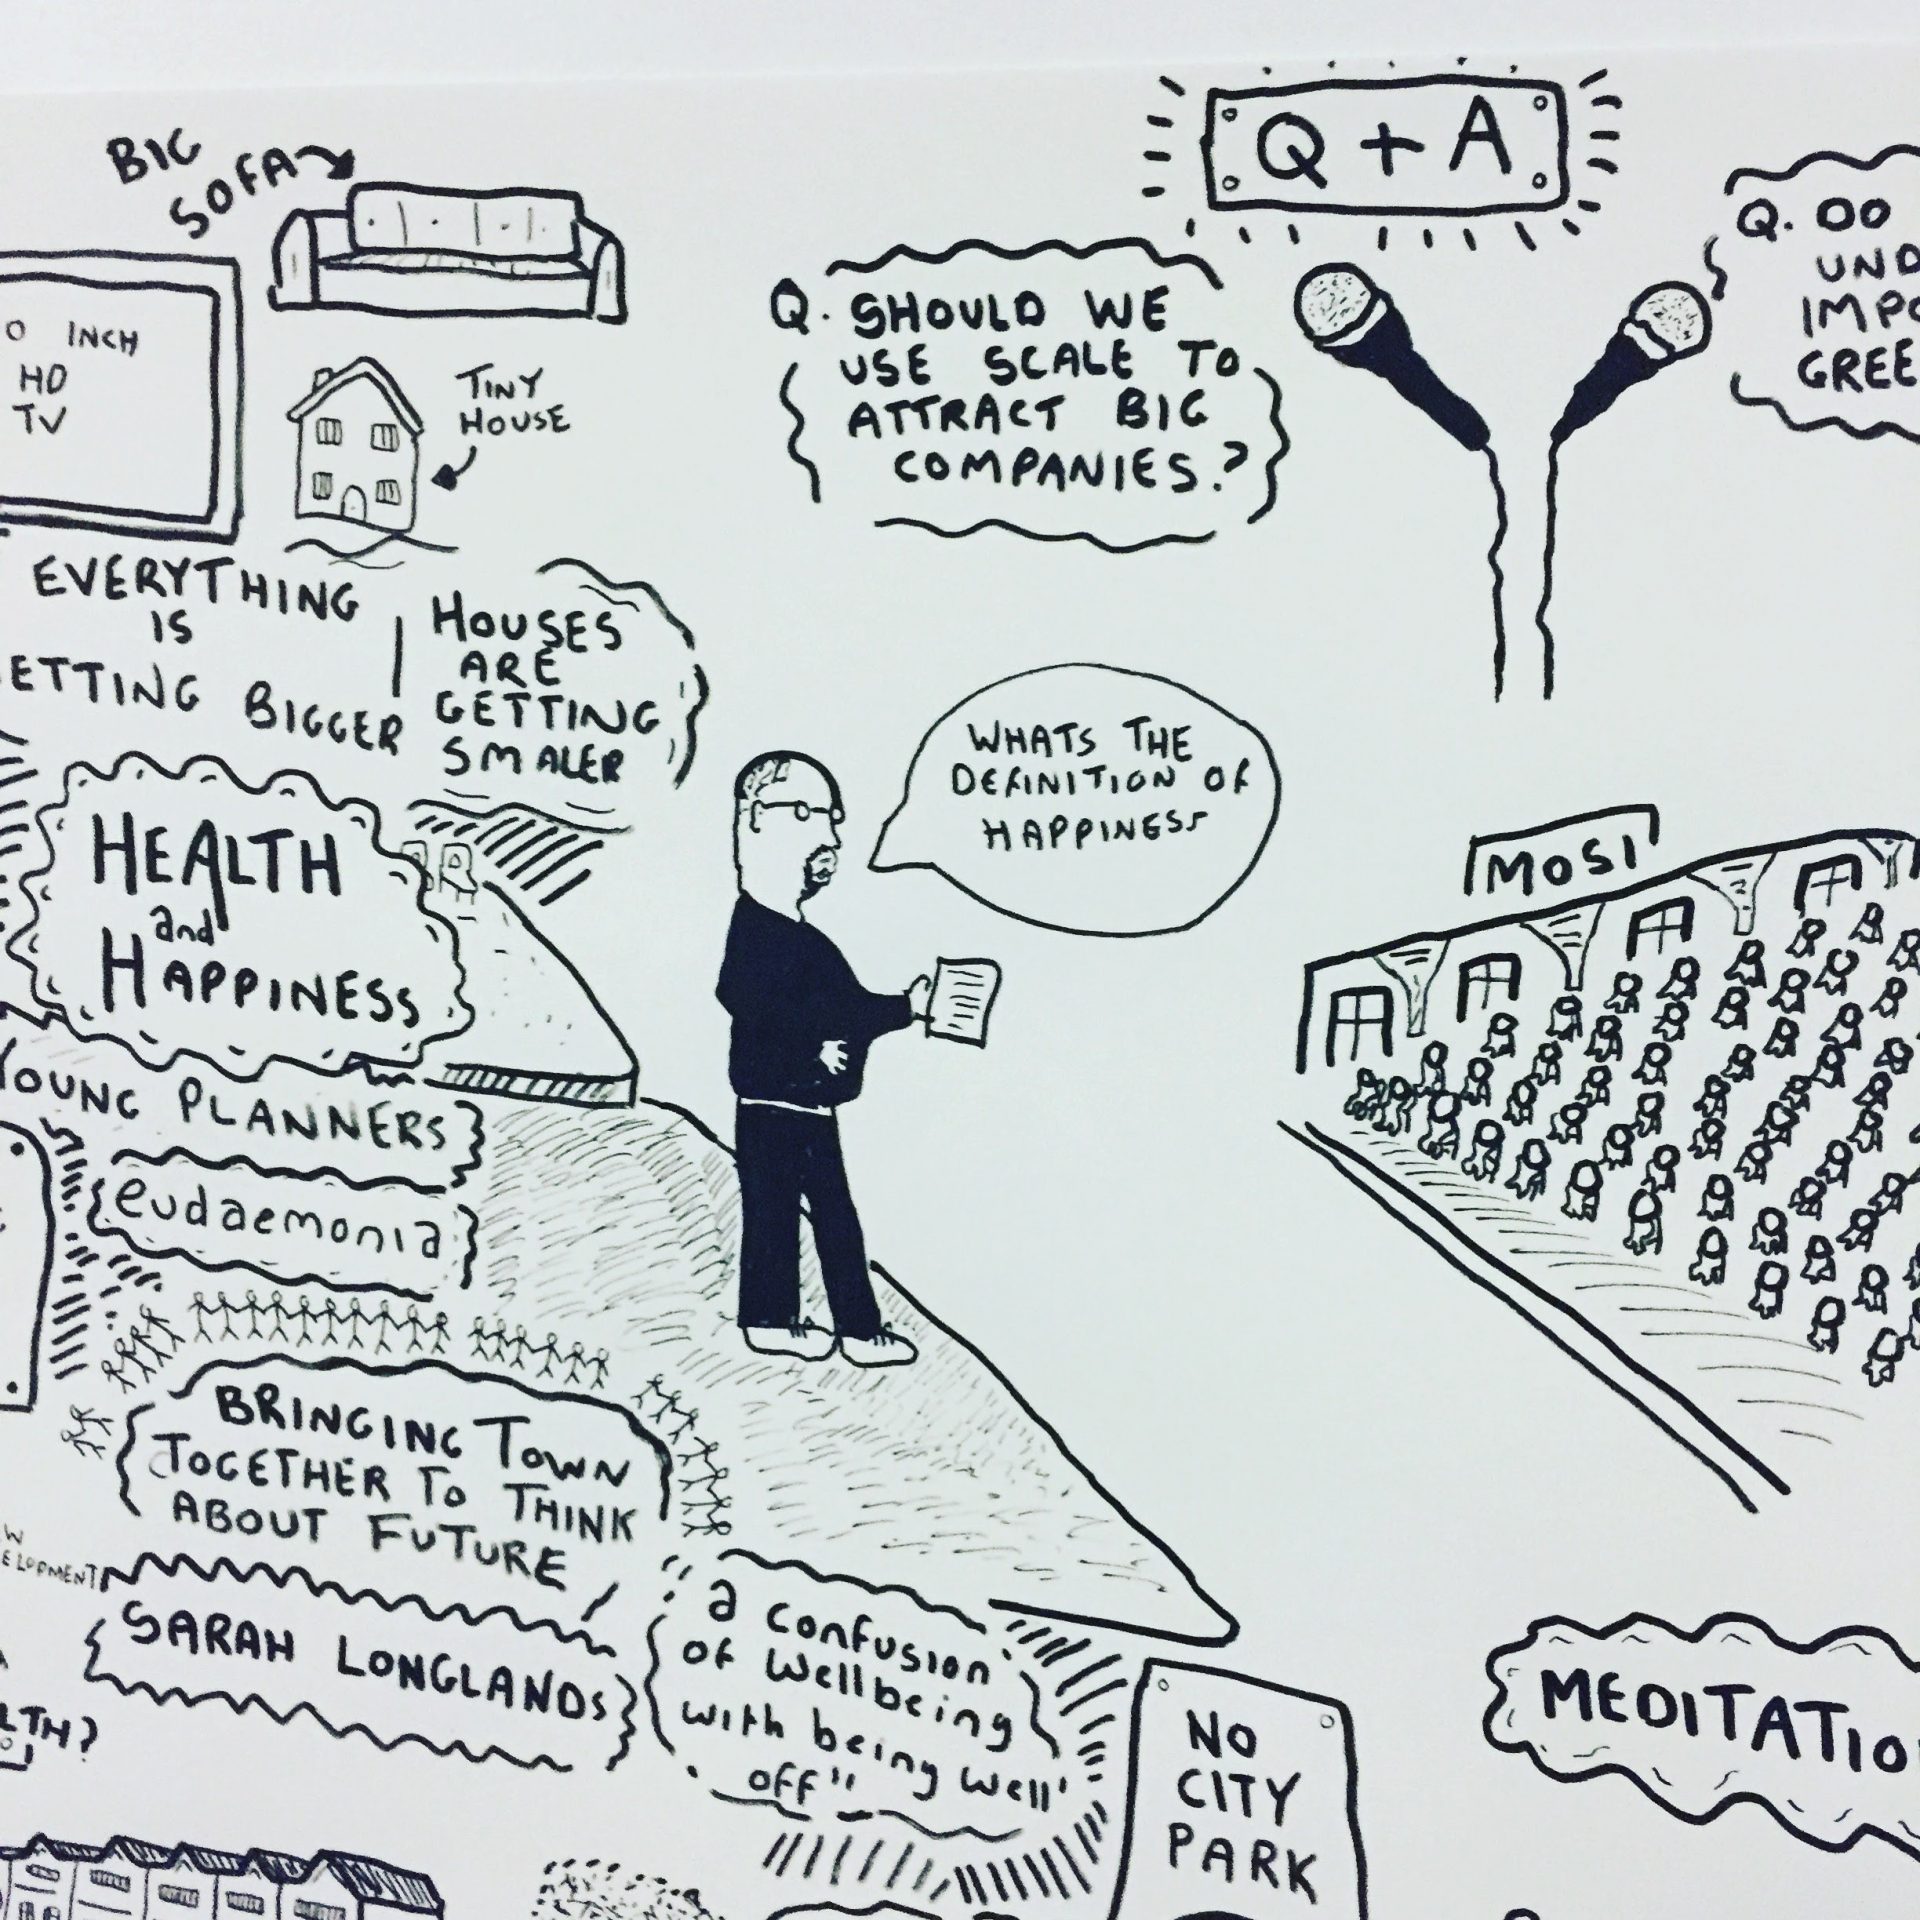 BIG
SOFA
O INCH
HD
TV
TINY
HOUSE
EVERYTHING
IS
ETTING BIGGER
HOUSES
ARE
GETTING
SMALER
Q + A
Q. SHOULD WE
USE SCALE TO
ATTRACT BIG
COMPANIES.?
Q. DO
UND
IMPO
GREE
WHATS THE
DEFINITION OF
HAPPINESS
HEALTH
and
HAPPINESS
YOUNG PLANNERS
eudaemonia
MOSI
BRINGING TOWN
TOGETHER TO THINK
ABOUT FUTURE
W
ELOPMENT
SARAH LONGLANDS
LTH?
"a confusion
of wellbeing
with being well
off"
NO
CITY
PARK
MEDITATIO